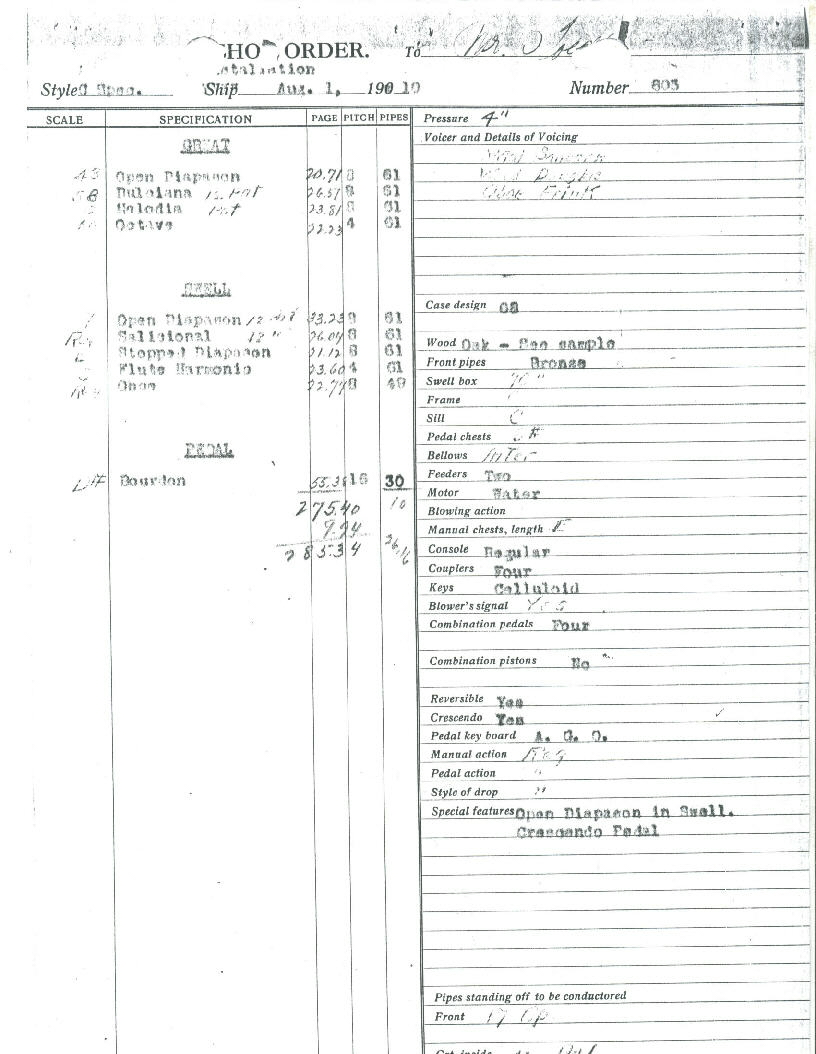 HO ORDER. To Mr.
Style Spec. Ship Aug. 1, 190 10 Number 803
SCALE SPECIFICATION PAGE PITCH PIPES
GREAT
43 Open Diapason 20.71 8 61
58 Dulciana 26.57 8 61
Melodia 23.81 8 61
Octave 22.23 4 61
SWELL
Open Diapason 33.23 8 61
Salicional 12 " 26.04 8 61
Stopped Diapason 21.12 8 61
Flute Harmonic 23.60 4 61
Oboe 22.77 8 49
PEDAL
Bourdon 16 30
275.40 10
9.94
285.34
Pressure 4"
Voicer and Details of Voicing
Case design 68
Wood Oak - See sample
Front pipes Bronze
Swell box
Frame
Sill C
Pedal chests
Bellows Inter
Feeders Two
Motor Water
Blowing action
Manual chests, length E
Console Regular
Couplers Four
Keys Celluloid
Blower's signal Yes
Combination pedals Four
Combination pistons No
Reversible Yes
Crescendo Yes
Pedal key board A. G. O.
Manual action Reg
Pedal action "
Style of drop "
Special features Open Diapason in Swell.
Crescendo Pedal
Pipes standing off to be conductored
Front 17 Op